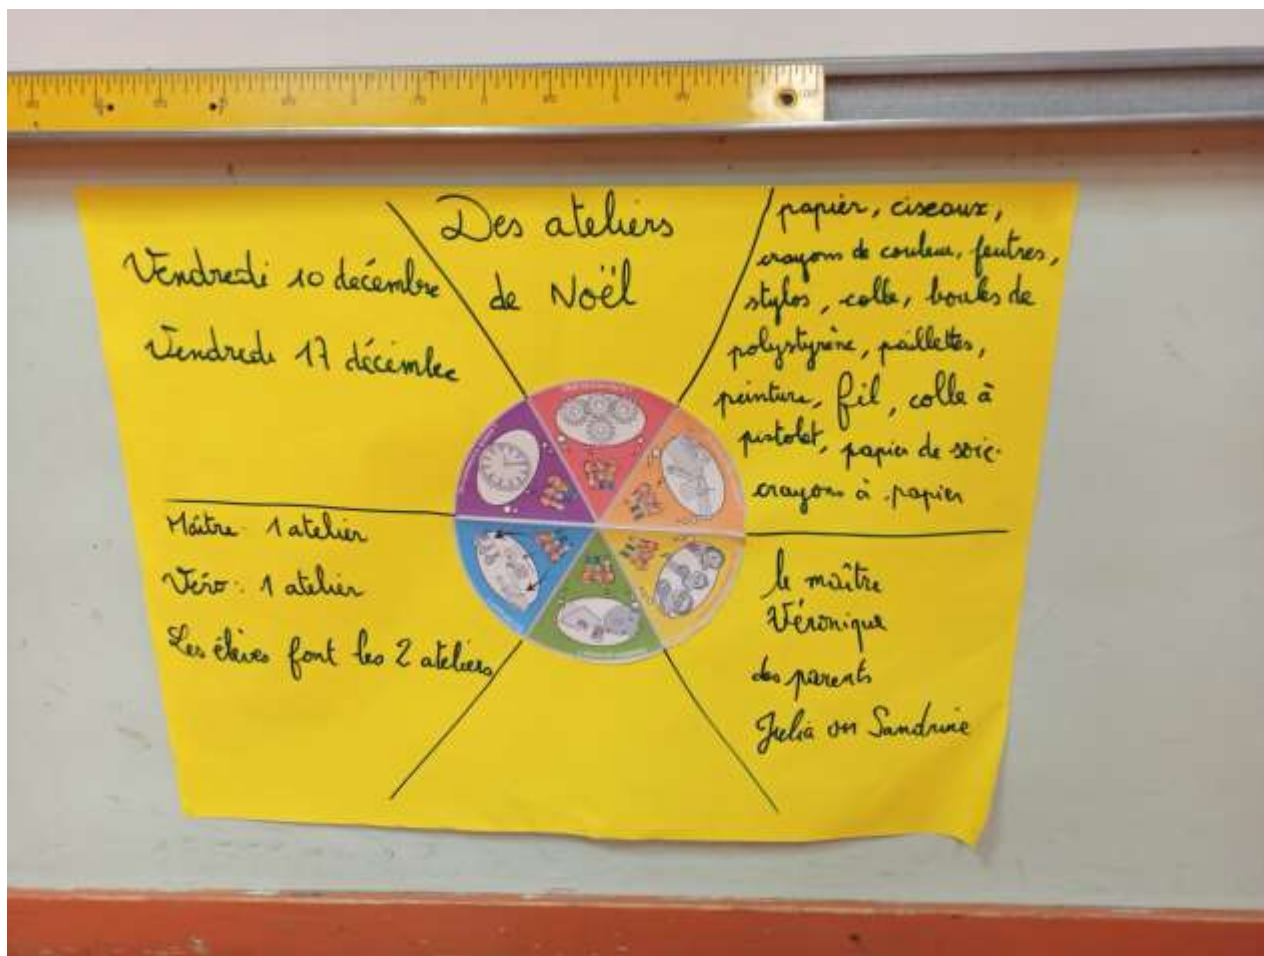 Des ateliers
de Noël
Vendredi 10 décembre
Vendredi 17 décembre
papier, ciseaux,
crayons de couleur, feutres,
stylos, colle, boules de
polystyrène, paillettes,
peinture, fil, colle à
pistolet, papier de soie.
crayons à papier
Maître : 1 atelier
Véro : 1 atelier
Les élèves font les 2 ateliers
le maître
Véronique
des parents
Julia ou Sandrine